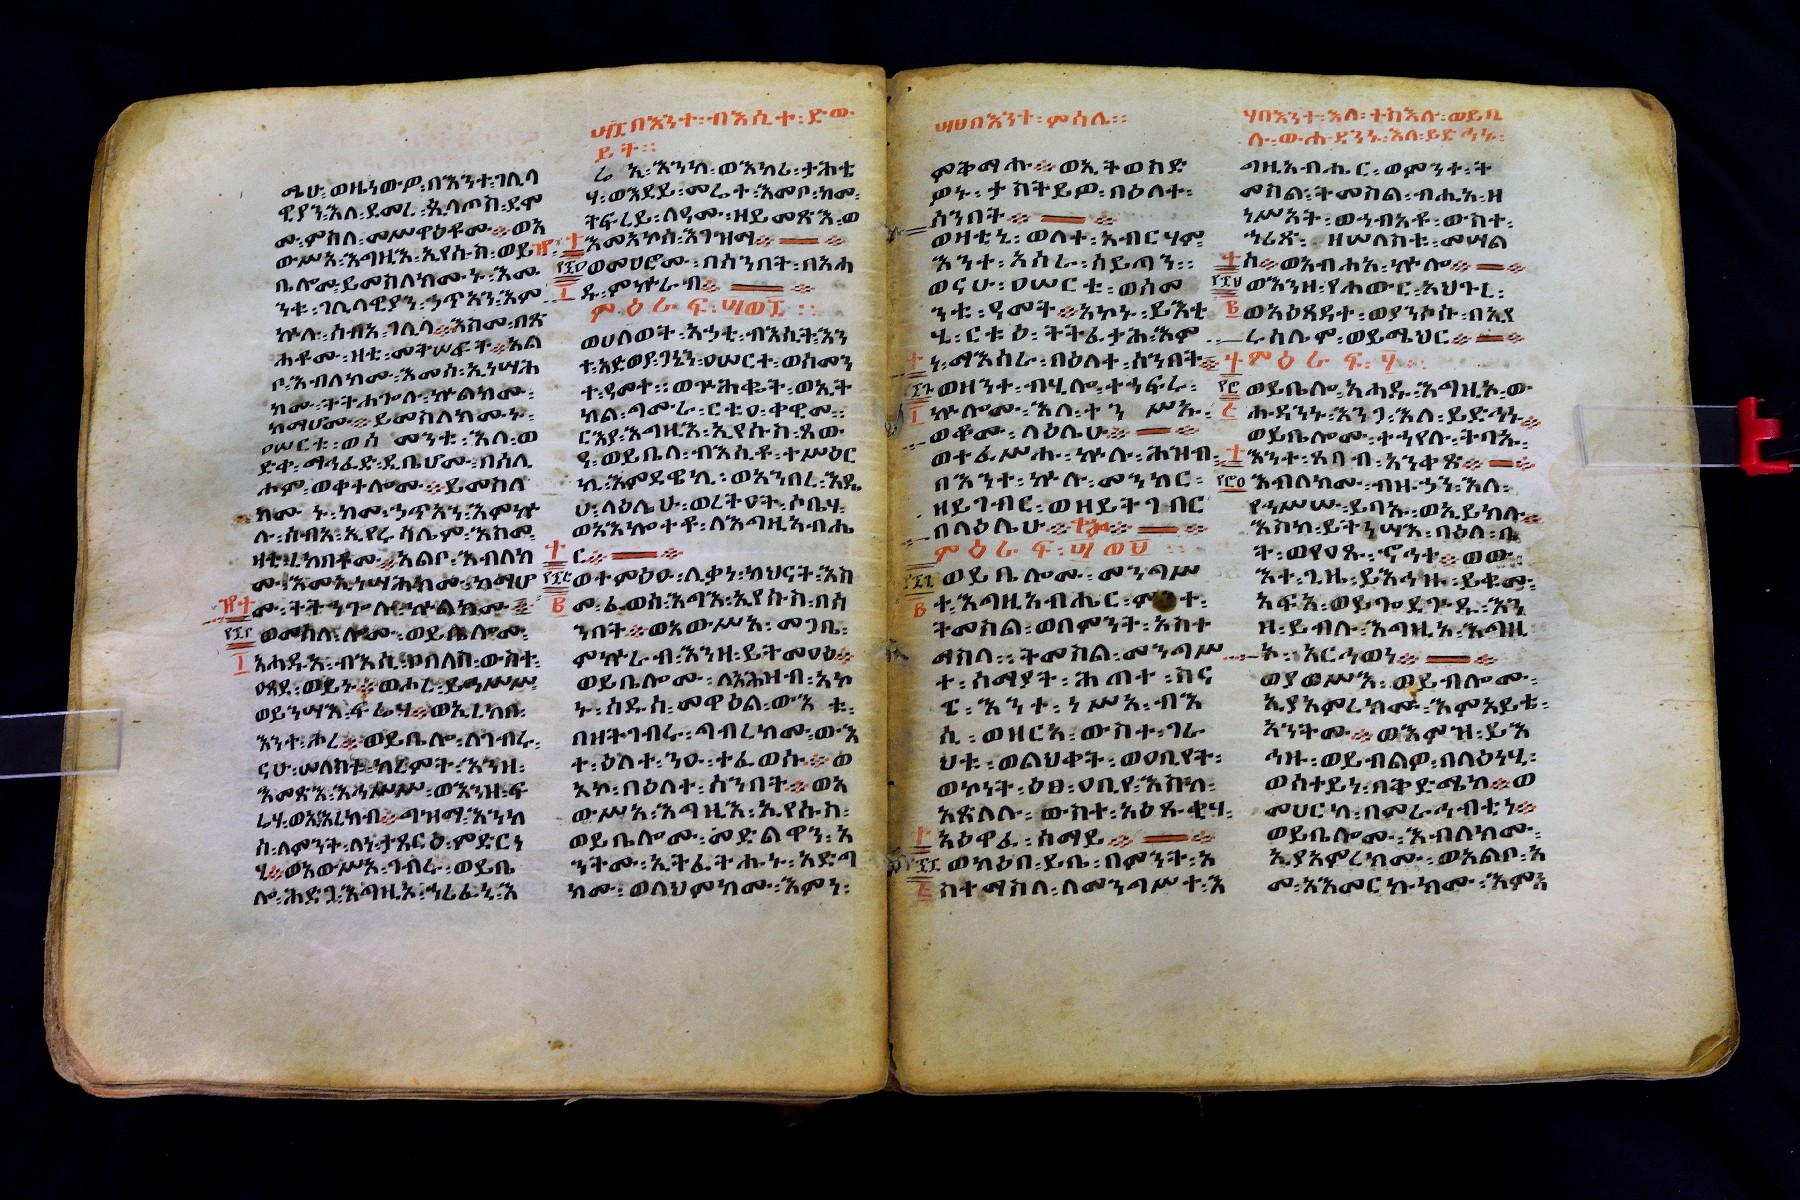 ሜሁ፡ወዜነውዎ፡በእንተ፡ገሊላ
ዊያን፡እለ፡ደመረ፡ጲላጦስ፡ደሞ
ሙ፡ምስለ፡መሥዋዕቶሙ፡፡ወአ
ውሥአ፡እግዚእ፡ኢየሱስ፡ወይ
ቤሎሙ፡ይመስለክሙኑ፡እሙ
ንቱ፡ገሊላዊያን፡ኃጥኣን፡እም
ኵሉ፡ሰብአ፡ገሊላ፡እስመ፡በጽ
ሖሙ፡ዘቲ፡መቅሠፍት፡አል
ቦ፡እብለክሙ፡እመሰ፡ኢነሣሕ
ክሙ፡ትትሐጐሉ፡ኵልክሙ፡
ከማሆሙ፡ይመስለክሙኑ፡
ዐሠርቱ፡ወሰ መንቱ፡እለ፡ወ
ድቀ፡ማኅፈድ፡ዲቤሆሙ፡በሰሊ
ሖም፡ወቀተሎሙ፡ይመስለ
ክሙ ኑ፡ከመ፡ኃጥኣን፡እምኵ
ሉ፡ሰብአ፡ኢየሩሳሌም፡እስመ፡
ዛቲ፡ረከበቶሙ፡አልቦ፡እብለክ
ሙ፡እመ፡ኢነሣሕክሙ፡ከማሆ
ሙ፡ትትኀጐሉ፡ኵልክሙ፡
ወመሰለ፡ሎሙ፡ወይቤሎሙ፡
አሐዱ፡ብእሲ፡ቦ፡በለሰ፡ውስተ፡
ዐጸደ፡ወይኑ፡ወሖረ፡ይኅሥሥ፡
ወይንሣእ፡ፍሬሃ፡ወኢረከበ፡
እንተ፡ሖረ፡ወይቤሎ፡ለገብሩ፡
ናሁ፡ሠለስቱ፡ክረምት፡እንዘ፡
እመጽእ፡እኅሥሥ፡ወእንዘ፡ፍ
ሬሃ፡ወኢእረክብ፡ግዝማ፡እንከ
ሰ፡ለምንት፡ለነ፡ታጸርዕ፡ምድርነ
ሂ፡ወአውሥአ፡ገብሩ፡ወይቤ
ሎ፡ሕድጋ፡እግዚኦ፡ኅሪፈኒ፡እ
ሣ፲በእንተ፡ብእሲት፡ድው
ይት፡፡
ሬ ኢ፡እንከ፡ወእክሪ፡ታሕቲ
ሃ፡ወእደይ፡መሬተ፡እመቦ፡ከመ፡
ትፍረይ፡ለዓሙ፡ዘይመጽእ፡ወ
እመአኮሰ፡እገዝማ፡፡
፲፬ወመሀሮሙ፡በሰንበት፡በአሐ
ዱ፡ምኵራብ፡፡
ምዕራፍ፡ሣወ፲፡፡
ወሀለወት፡አኃቲ፡ብእሲት፡እን
ተ፡አድወያ፡ጋኔን፡ዐሠርተ፡ወሰመን
ተ፡ዓመተ፡፡ወጕሕቈት፡ወኢት
ክል፡ግሙራ፡ርቱዐ፡ቀዊመ፡፡
ርእያ፡እግዚእ፡ኢየሱስ፡ጸው
ዓ፡ወይቤላ፡ብእሲቶ፡ተሥዕር
ኪ፡እምደዌኪ፡ወአንበረ፡እዴ
ሁ፡ላዕሌሃ፡ወረትዐት፡ሶቤሃ፡
ወአእኰተቶ፡ለእግዚአብሔ
ር፡፡
፲፭ወተምዕዐ፡ሊቃነ፡ክህናት፡እስ
መ፡ፈወሰ፡እግእ፡ኢየሱስ፡በሰ
ንበት፡ወአውሥአ፡መጋቤ፡
ምኵራብ፡እንዘ፡ይትመዐዕ፡
ወይቤሎሙ፡ለእሕዝብ፡አኮ
ኑ፡ሰዱስ፡መዋዕል፡ውእ ቱ፡
በዘትገብሩ፡ግብረክሙ፡ውእ
ተ፡ዕለተ፡ንዑ፡ተፈወሱ፡ወ
አኮ፡በዕለተ፡ሰንበት፡ወአ
ውሥአ፡እግዚእ፡ኢየሱስ፡
ወይቤሎሙ፡መድልዋን፡አ
ንትሙ፡ኢትፈትሑኑ፡አድግ
ክሙ፡ወላህምክሙ፡እምነ፡
ሣሀበእንተ፡ምሳሌ፡፡
ምቅማሑ፡ወኢትወስድ
ወኑ፡ታስትይዎ፡በዕለተ፡
ሰንበት፡፡
ወዛቲኒ፡ወለተ፡አብርሃም፡
እንተ፡አሰራ፡ሰይጣን፡፡
ወናሁ፡ዐሠርቱ፡ወሰመ
ንቱ፡ዓመት፡አኮኑ፡ይእቲ
ሂ፡ርቱዕ፡ትትፈታሕ፡እም
ነ፡ማእሰራ፡በዕለተ፡ሰንበት፡
ወዘንተ፡ብሂሎ፡ተኀፍሩ፡
ኵሎሙ፡እለ፡ትን ሥኡ፡
ወቆሙ፡ላዕሌሁ፡፡
ወተፈሥሑ፡ኵሉ፡ሕዝብ፡
በእንተ፡ኵሉ፡መንክር፡
ዘይገብር፡ወዘይትገበር
በላዕሌሁ፡፡
ምዕራፍ፡ሣወሀ፡፡
ወይቤሎሙ፡መንግሥ
ተ፡እግዚአብሔር፡ም ተ፡
ትመስል፡ወበምንት፡አስተ
ማስላ፡፡ትመስል፡መንግሥ
ተ፡ሰማያት፡ሕጠተ፡ስና
ፔ፡እንተ፡ነሥአ፡ብእ
ሲ፡ወዘርአ፡ውስተ፡ገራ
ህቱ፡ወልህቀት፡ወዐበየት፡
ወኮነት፡ዕፀ፡ዐቢየ፡እስከ፡
አጽለሉ፡ውስተ፡አዕጹቂሃ፡
አዕዋፈ፡ሰማይ፡፡
ወካዕበ፡ይቤ፡በምንት፡አ
ስተማስላ፡ለመንግሥተ፡እ
ሃበእንተ፡እለ፡ተክእሉ፡ወይቢ
ሉ፡ውሐዳንኑ፡እለ፡ይድኅኑ፡
ግዚአብሔር፡ወምንተ፡ት
መስል፡ትመስል፡ብሒአ፡ዘ
ነሥአት፡ወኀብአቶ፡ውስተ፡
ኀሪጽ፡ ዘሠለስቱ፡መሣል
ስ፡ወአብሐአ፡ኵሎ፡፡
ወእንዘ፡የሐውር፡አህጉረ፡
ወአዕጻዳተ፡ወያንሶሱ፡በኢየ
ሩሳሌም፡ወይሜህር፡፡
ምዕራፍ፡ሃ፡፡
ወይቤሎ፡አሐዱ፡እግዚኦ፡ው
ሑዳንኑ፡እንጋ፡እለ፡ይድኅኑ፡
ወይቤሎሙ፡ተኀየሉ፡ትባኡ፡
እንተ፡ጸባብ፡አንቀጽ፡፡
እብለክሙ፡ብዙኃን፡እለ፡
የኀሥሡ፡ይባኡ፡ወኢይክሉ፡
እስከ፡ይትነሣእ፡በዕለ፡ቤ
ት፡ወየዐጹ፡ኆኅተ፡ወው
እተ፡ጊዜ፡ይእኅዙ፡ይቁሙ፡
አፍአ፡ወይጐደጕዱ፡እን
ዘ፡ይብሉ፡እግዚኦ፡እግዚ
ኦ፡አርኅወነ፡፡
ወያወሥእ፡ወይብሎሙ፡
ኢያአምረክሙ፡እምአይቴ፡
አንትሙ፡ወእምዝ፡ይእ
ኅዙ፡ወይብልዎ፡በላዕነሂ፡
ወሰተይነ፡በቅድሜከ፡ወ
መሀርከ፡በምራኅብቲነ፡
ወይቤሎሙ፡እብለክሙ፡
ኢያአምረክሙ፡ወአልቦ፡አ
መ፡አአመርኩክሙ፡እምአ